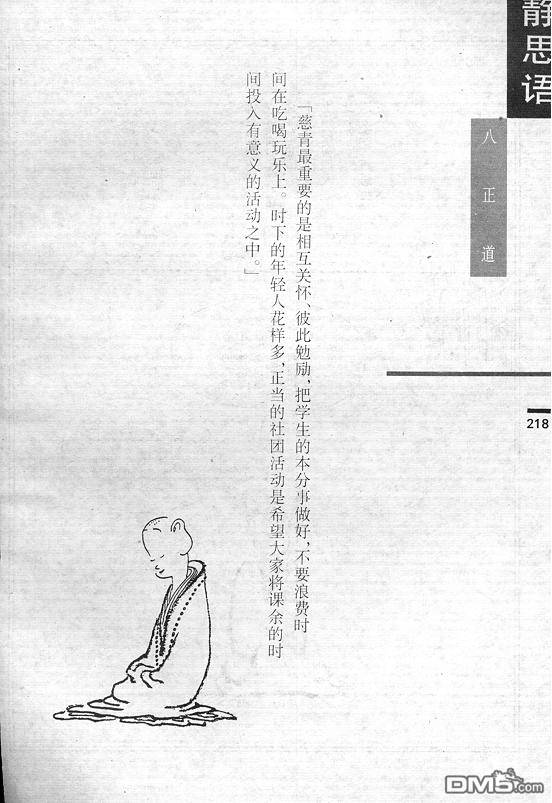 静思语
八正道
218
「慈青最重要的是相互关怀、彼此勉励，把学生的本分事做好，不要浪费时
间在吃喝玩乐上。时下的年轻人花样多，正当的社团活动是希望大家将课余的时
间投入有意义的活动之中。」
DM5.com